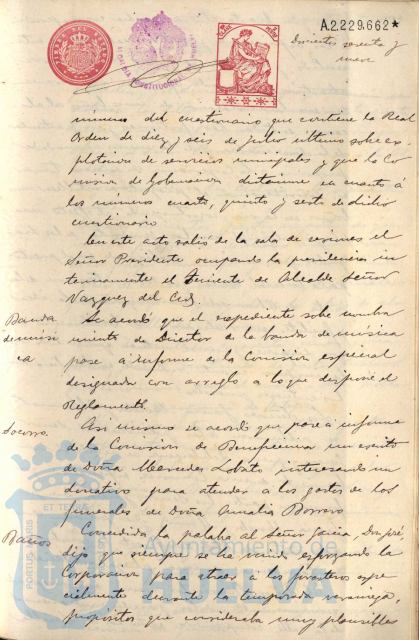 A2.229.662*
Doscientos sesenta y
nueve
número del cuestionario que contiene la Real
Orden de diez y seis de Julio último sobre ex-
plotación de servicios municipales y que la Co
misión de Gobernación dictamine en cuanto á
los números cuarto, quinto y sexto de dicho
cuestionario
En este acto salió de la sala de sesiones el
Señor Presidente ocupando la presidencia in
terinamente el Teniente de Alcalde Señor
Vazquez del Cid.
Banda
de músi
ca
Se acordó que el expediente sobre nombra
miento de Director de la banda de música
pase á informe de la Comisión especial
designada con arreglo a lo que dispone el
Reglamento.
Socorro.
Así mismo se acordó que pase á informe
de la Comisión de Beneficencia un escrito
de Doña Mercedes Lobato interesando un
donativo para atender a los gastos de los
funerales de Doña Amalia Borrero
Baños
Concedida la palabra al Señor García,
dijo que siempre se ha venido esforzando la
Corporación para atraer á los forasteros espe
cialmente durante la temporada veraniega,
propósitos que consideraba muy plausibles
Ayuntamiento de
HUELVA
PORTUS MARIS
ET TERRAE